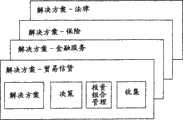 解决方案-法律
解决方案-保险
解决方案-金融服务
解决方案-贸易信贷
解决方案
决策
投资
组合
管理
收集